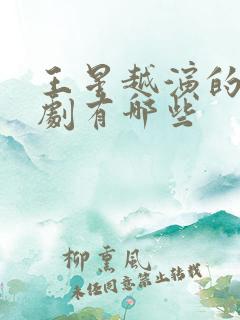 王星越演的
劇有哪些
柳熏風
未经同意禁止转载